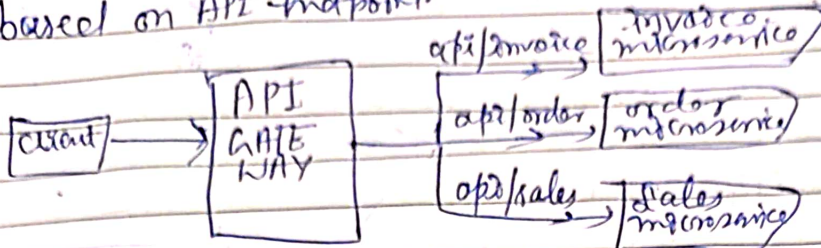 based on API endpoint.
client
API
GATE
WAY
api/invoice
invoice
microservice
api/order
order
microservice
api/sales
sales
microservice